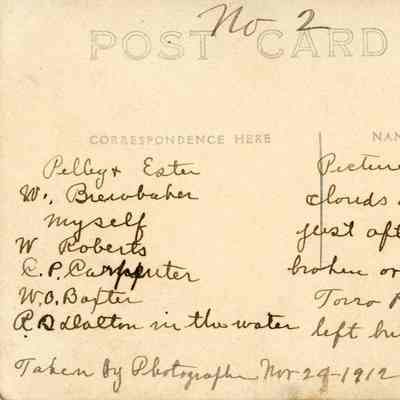 No 2
POST CARD
CORRESPONDENCE HERE
NAM
Pelley + Ester
W. Brewbaker
Myself
W Roberts
C. P. Carpenter
W. O. Baxter
R. D. Dalton in the water
Picture
clouds
just aft
broken or
Torro
left bu
Taken by Photographer Nov 29-1912